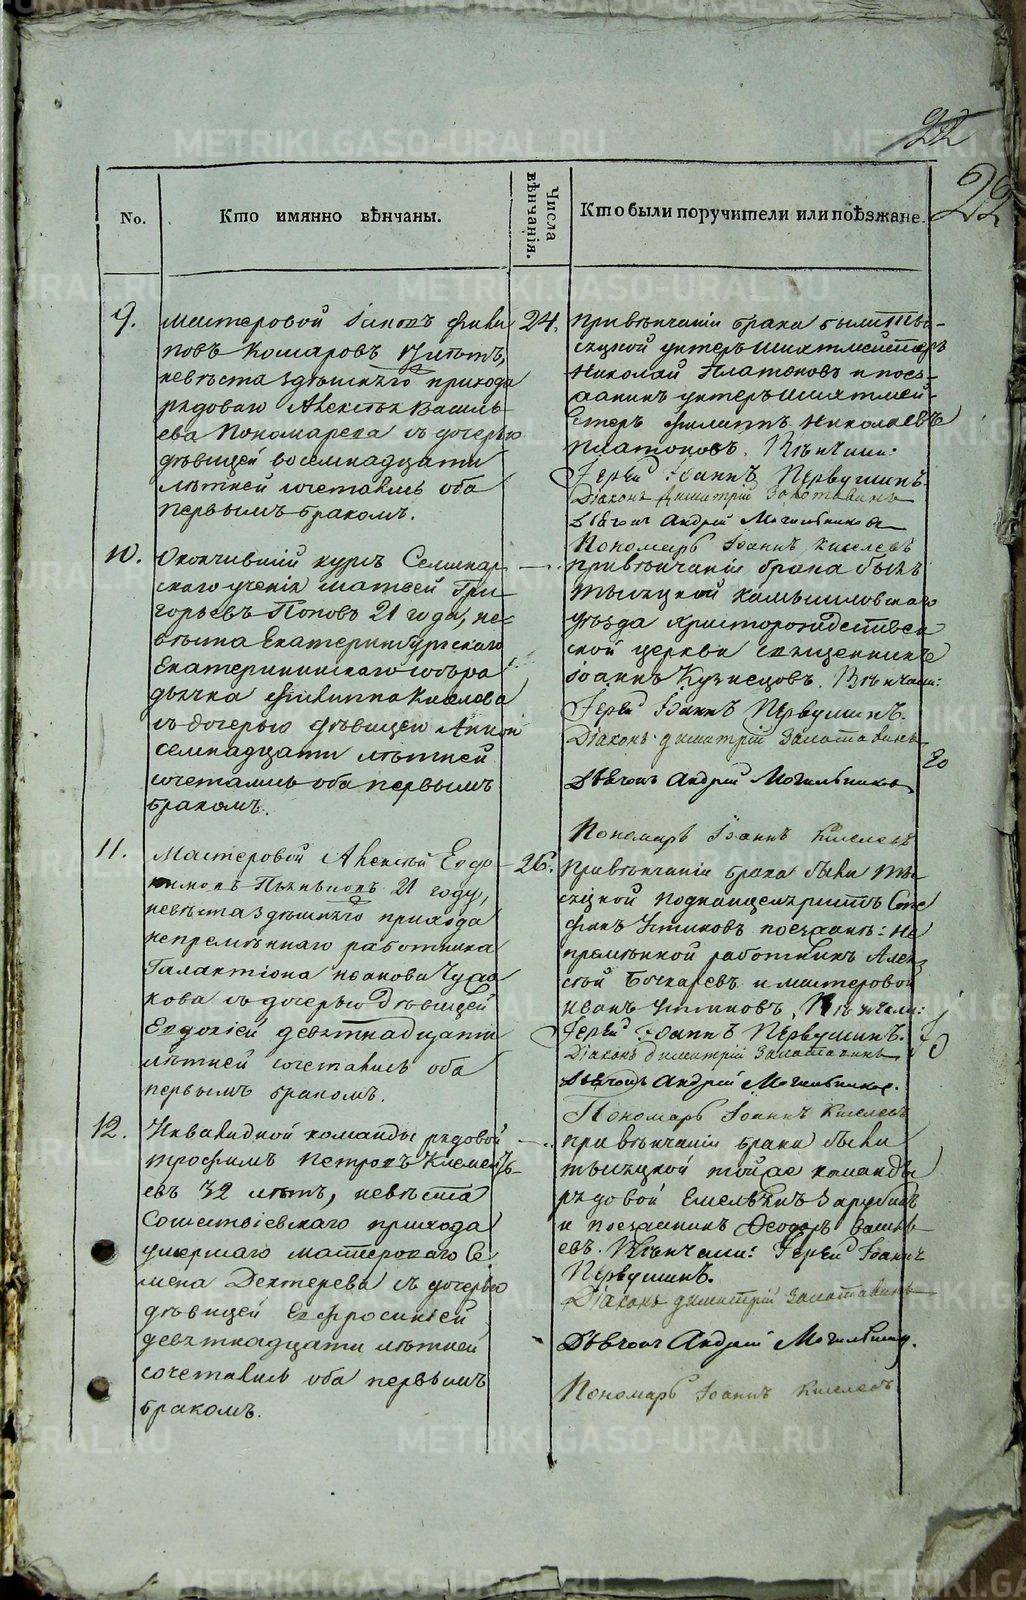 22
22
No.
Кто имянно вѣнчаны.
Числа вѣнчанія.
Кто были поручители или поѣзжане.
9.
Мастеровой Іаковъ Фили
повъ Комаровъ лѣтъ,
невѣста здѣшняго прихода
рядоваго Алексѣя Василь
ева Пономарева съ дочерью
дѣвицей восемнадцати
лѣтней сочетались оба
первымъ бракомъ.
24.
При вѣнчаніи брака были ты-
сяцкой унтеръ шихтмейстеръ
Николай Платоновъ и поез-
жанинъ унтеръ шихтмей-
стеръ Филиппъ Николаевъ
Платоновъ. Вѣнчали:
Іерей Іоаннъ Первушинъ.
Діаконъ Димитрій Золотавинъ
Дьячокъ Андрей Могильников
Пономарь Іоаннъ Киселевъ
10.
Окончившій курсъ Семинар
скаго ученія Матвей Гри
горьевъ Поповъ 21 года, не
вѣста Екатеринбургскаго
Екатерининскаго собора
дьячка Филиппа Киселева
съ дочерью дѣвицею Анной
семнадцати лѣтней
сочетались оба первымъ
бракомъ.
— .
При вѣнчаніи брака былъ
тысяцкой Камышловскаго
уѣзда Христорождествен
ской церкви священникъ
Іоаннъ Кузнецовъ. Вѣнчали:
Іерей Іоаннъ Первушинъ.
Діаконъ Димитрій Залатавинъ
Дьячокъ Андрей Могильников
Пономарь Іоаннъ Киселевъ
11.
Мастеровой Алексѣй Евдо
кимовъ Пьянковъ 21 году,
невѣста здѣшняго прихода
непремѣннаго работника
Галактіона Иванова Чуса
кова съ дочерью дѣвицей
Евдокіей девятнадцати
лѣтней сочетались оба
первымъ бракомъ.
26.
При вѣнчаніи брака были ты-
сяцкой подканцеляристъ
Устиновъ поезжане: не
премѣнной работникъ Алек
сѣй Бочкаревъ и мастеровой
Иванъ Устиновъ. Вѣнчали:
Іерей Іоаннъ Первушинъ.
Діаконъ Димитрій Залатавинъ
Дьячокъ Андрей Могильников.
Пономарь Іоаннъ Киселевъ
12.
Инвалидной команды рядовой
Трофимъ Петровъ Клементь-
евъ 32 лѣтъ, невѣста
Сошествіевскаго прихода
умершаго мастероваго Се
мена Дектерева съ дочерью
дѣвицей Евфросиніей
девятнадцати лѣтней
сочетались оба первымъ
бракомъ.
— .
При вѣнчаніи брака были
тысяцкой той же команды
рядовой Емельянъ Зарубинъ
и поезжанинъ Ѳеодоръ Василь
евъ. Вѣнчали: Іерей Іоаннъ
Первушинъ.
Діаконъ Димитрій Залатавинъ
Дьячокъ Андрей Могильник.
Пономарь Іоаннъ Киселевъ
METRIKI.GASO-URAL.RU